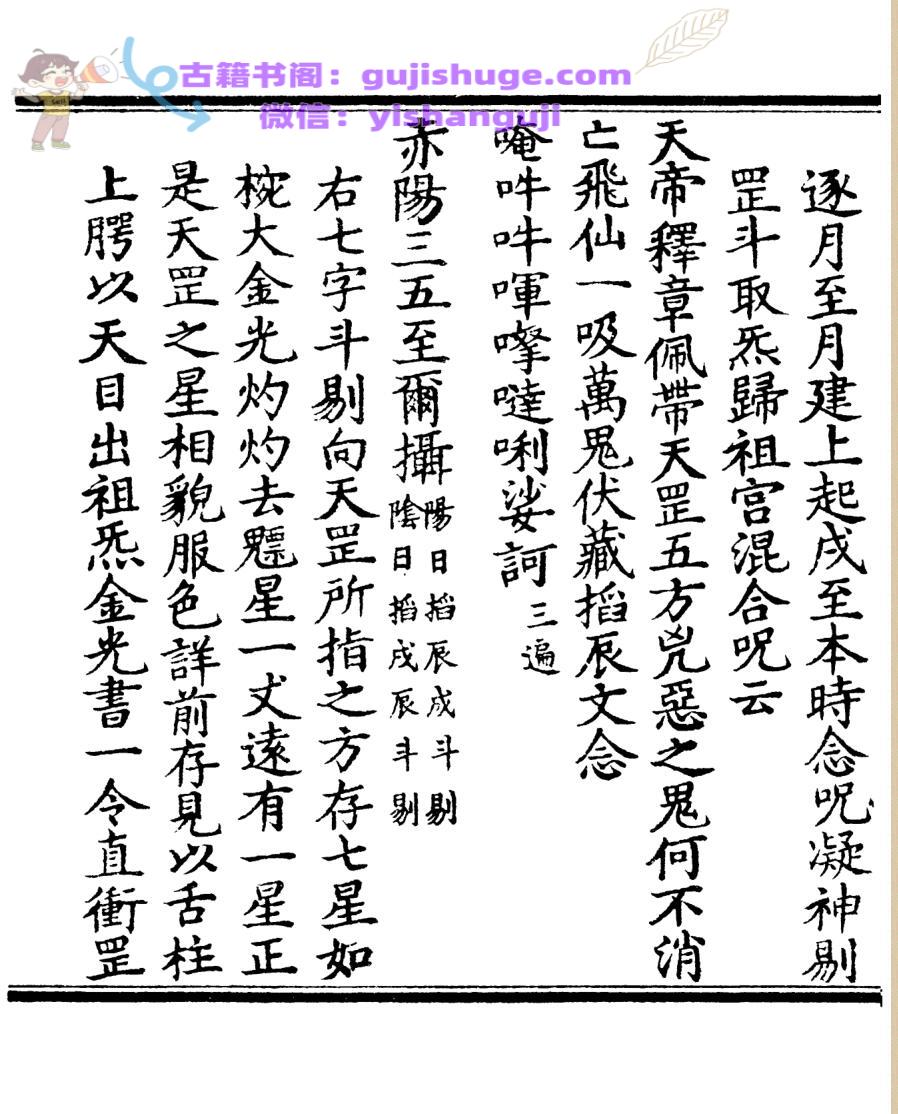 古籍书阁：gujishuge.com
微信：yishanguji
逐月至月建上起戌至本時念呪凝神剔
罡斗取炁歸祖宮混合呪云
天帝釋章佩帶天罡五方兇惡之鬼何不消
亡飛仙一吸萬鬼伏藏搯辰文念
唵吽吽㖶嚓噠唎娑訶三遍
赤陽三五至爾攝陽日搯辰戌斗剔陰日搯戌辰斗剔
右七字斗剔向天罡所指之方存七星如
椀大金光灼灼去魒星一丈遠有一星正
是天罡之星相貌服色詳前存見以舌柱
上腭以天目出祖炁金光書一令直衝罡